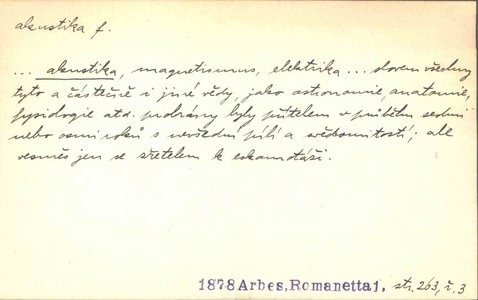 akustika f.
... akustika, magnetismus, elektrika ... slovem všechny
tyto a částečně i jiné vědy, jako astronomie, anatomie,
fysiologie atd. probrány byly přítelem v průběhu sedmi
nebo osmi roků s nevšední pílí a svědomitostí; ale
vesměs jen se zřetelem k eskamotáži.
1878 Arbes, Romanetta 1, str. 263, ř. 3